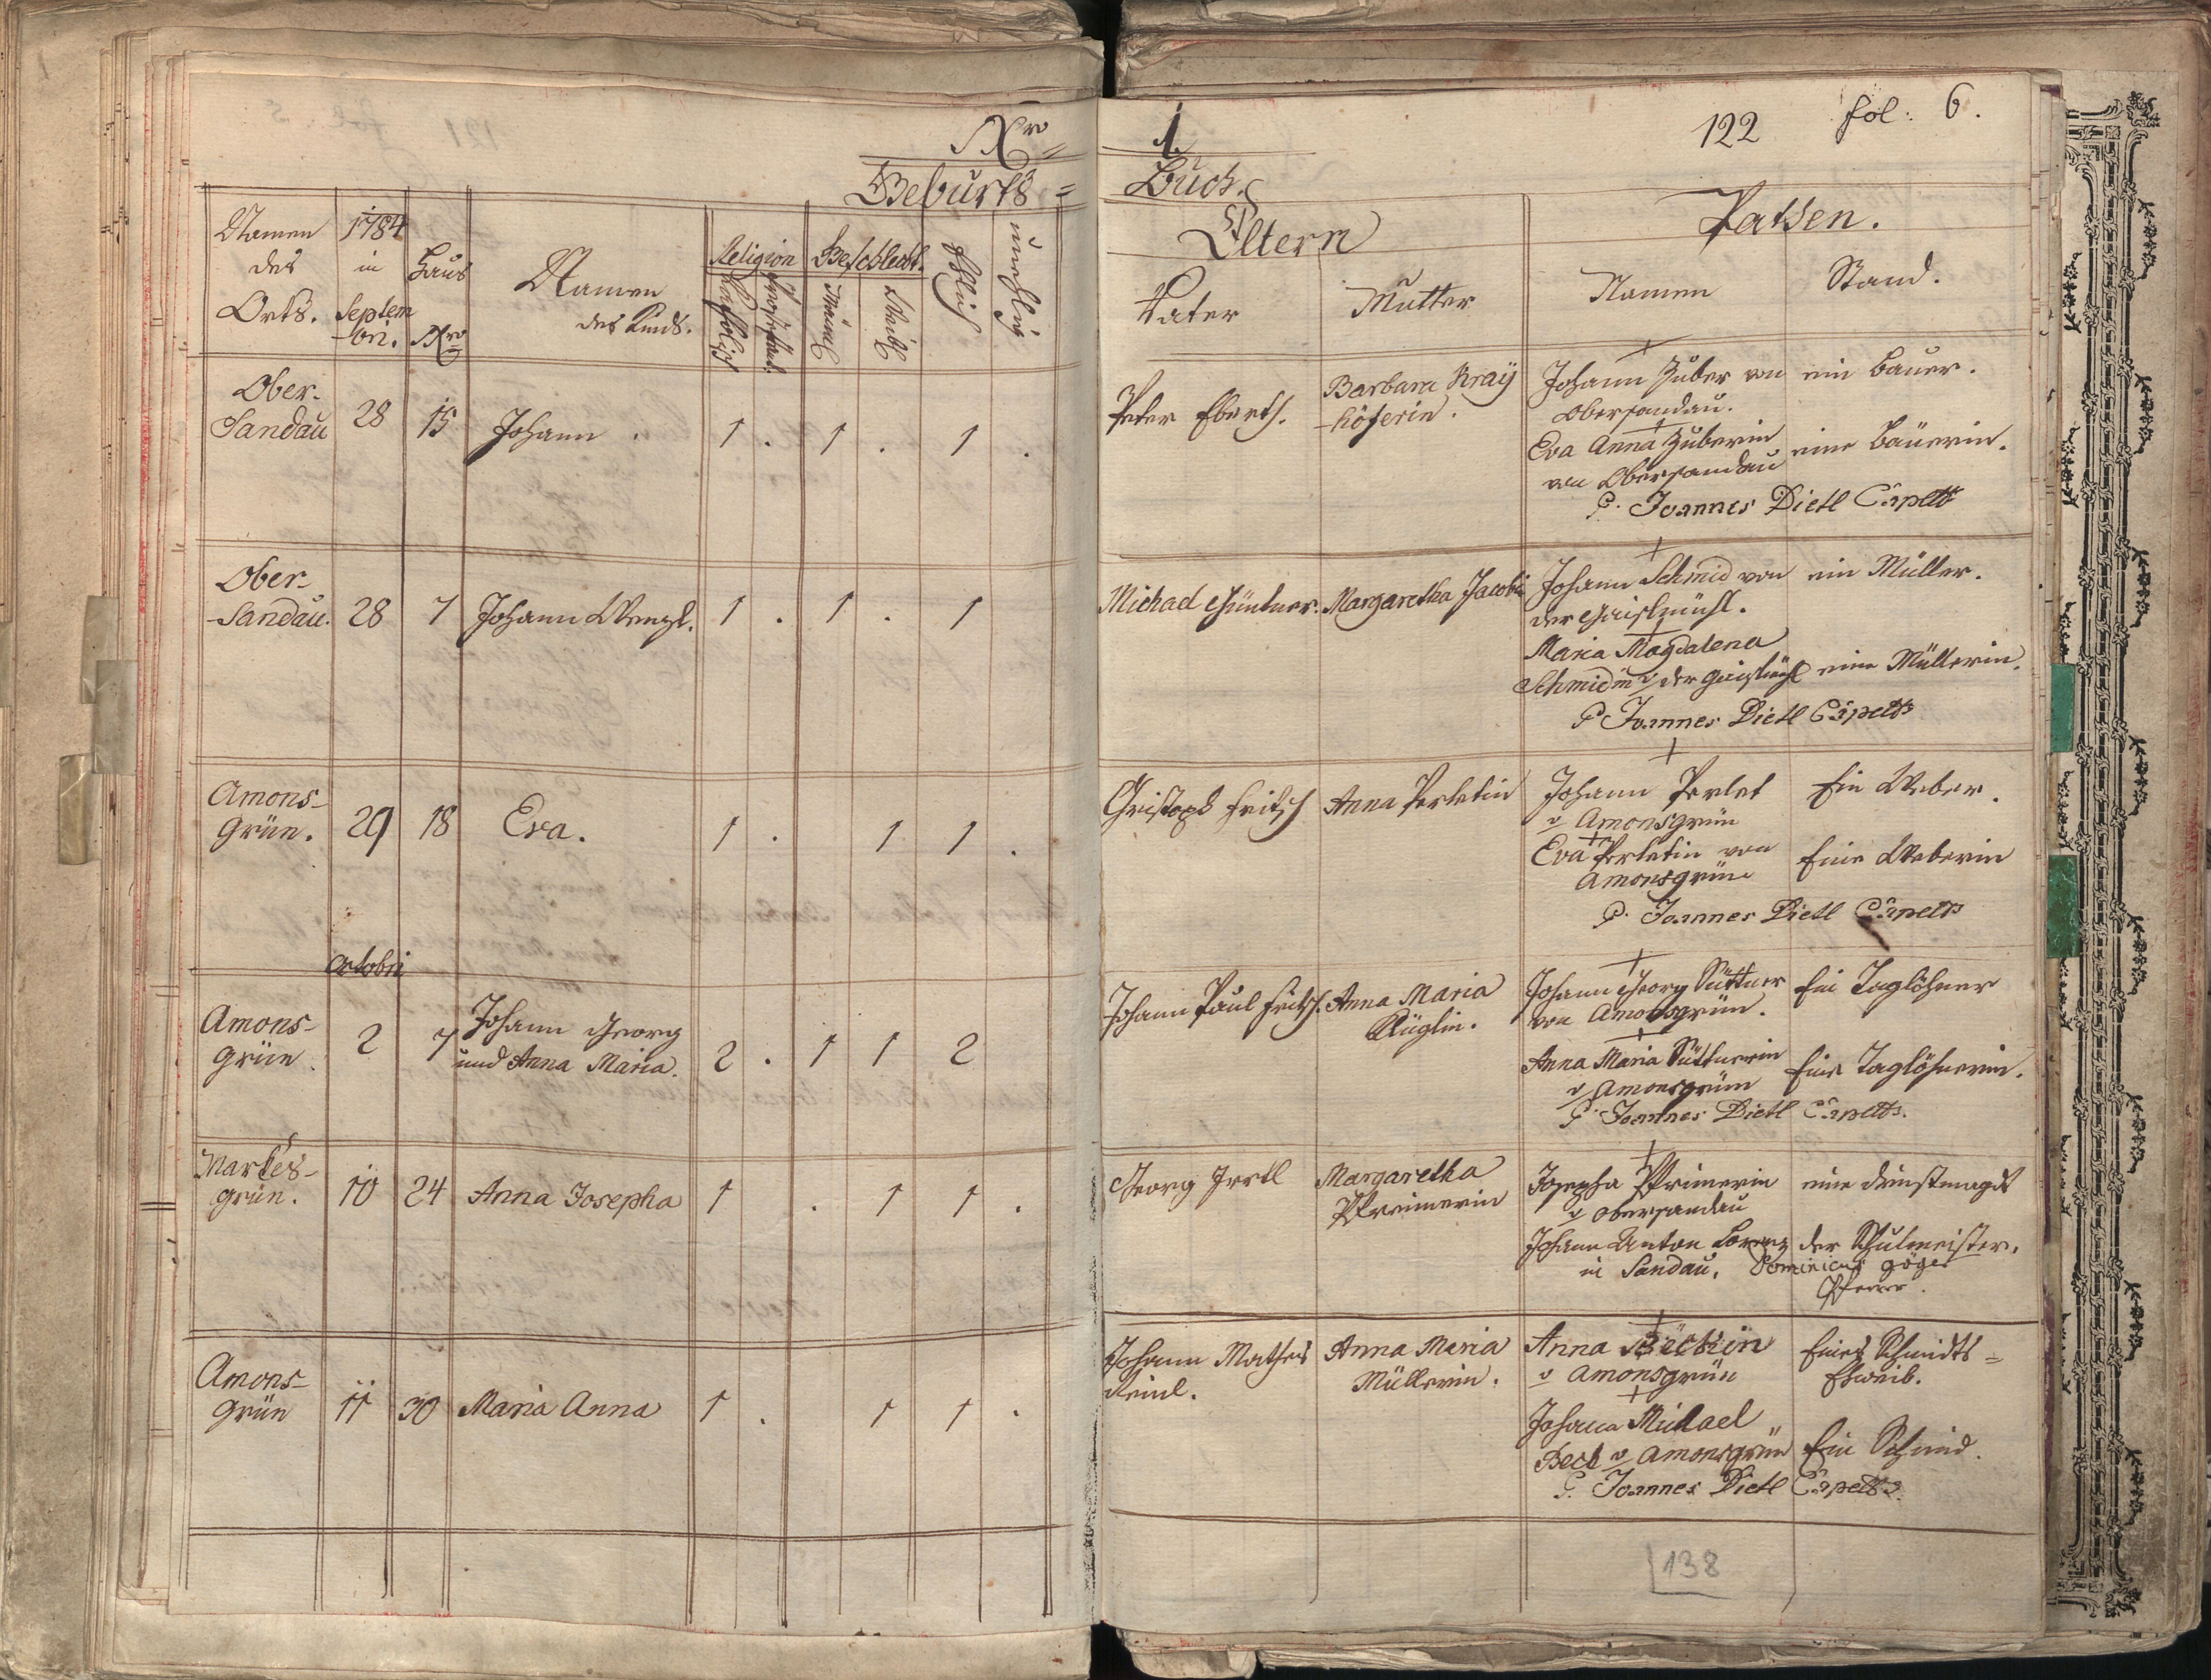 Nro 1.
122 fol: 6.
Geburts= Buch.
Namen des Orts.
1784 in Septembri.
Haus Nro
Namen des Kinds.
Religion
Katholisch
Protestant.
Geschlecht.
Mänl.
Weibl.
Ehlich
unehlig
Eltern
Vater
Mutter
Pathen.
Namen
Stand.
Ober-
Sandau 28 15 Johann . 1 . 1 . 1 .
Peter Eberth.
Barbara Kraÿ
-höferin.
Johann Zuber von
Obersandau.
ein Bauer.
Eva Anna Zuberin
von Obersandau
eine Bäuerin.
P. Joannes Dietl
Ober-
-Sandau. 28 7 Johann Wenzl. 1 . 1 . 1
Michael Güntner.
Margaretha Jacobin
Johann Schmid von
der
ein Müller.
Maria Magdalena
Schmidin v der
eine Müllerin.
P Joannes Dietl
Amons-
Grün. 29 18 Eva. 1 . 1 1 .
Christoph Fritsch
Anna Perletin
Johann Perlet
v Amonsgrün
Ein Weber.
Eva Perletin von
Amonsgrün
Eine Weberin
P. Joannes Dietl
Octobri
Amons-
Grün 2 7 Johann Georg
und Anna Maria. 2 . 1 1 2
Johann Paul Fritsch.
Anna Maria
Johann Georg Süttner
von Amonsgrün.
Ein Taglöhner
Anna Maria Süttnerin
v Amonsgrün
Eine Taglöhnerin.
P. Joannes Dietl
Markes-
grün. 10 24 Anna Josepha 1 . 1 1 .
Georg
Margaretha
Josepha
v Obersandau
eine Dienstmagd
Johann Anton Lorenz
in Sandau.
der Schulmeister.
Dominicus
Pfarrer.
Amons-
Grün 11 30 Maria Anna 1 . 1 1 .
Johann Mathes
Anna Maria
Müllerin.
Anna
v Amonsgrün
Eines Schmidts=
Eheweib.
Johann Michael
Beck v Amonsgrün
Ein Schmid.
P. Joannes Dietl
138